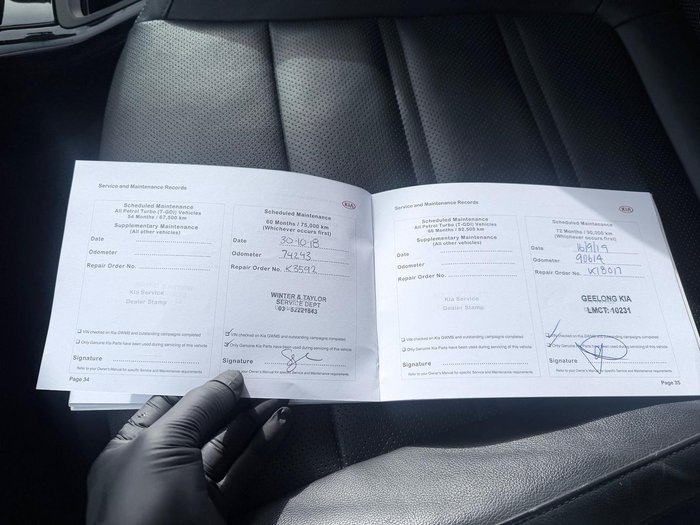 Service and Maintenance Records
KIA
Scheduled Maintenance
All Petrol Turbo (T-GDI) Vehicles
54 Months / 67,500 km
Supplementary Maintenance
(All other vehicles)
Date
Odometer
Repair Order No.
Kia Service
Dealer Stamp
VIN checked on Kia GWMS and outstanding campaigns completed
Only Genuine Kia Parts have been used during servicing of this vehicle
Signature
Refer to your Owner's Manual for specific Service and Maintenance requirements
Page 34
Scheduled Maintenance
60 Months / 75,000 km
(Whichever occurs first)
Date 30-10-18
Odometer 74243
Repair Order No. K3592
WINTER & TAYLOR
SERVICE DEPT
03 - 52221843
VIN checked on Kia GWMS and outstanding campaigns completed
Only Genuine Kia Parts have been used during servicing of this vehicle
Signature
Refer to your Owner's Manual for specific Service and Maintenance requirements
Service and Maintenance Records
KIA
Scheduled Maintenance
All Petrol Turbo (T-GDI) Vehicles
66 Months / 82,500 km
Supplementary Maintenance
(All other vehicles)
Date
Odometer
Repair Order No.
Kia Service
Dealer Stamp
VIN checked on Kia GWMS and outstanding campaigns completed
Only Genuine Kia Parts have been used during servicing of this vehicle
Signature
Refer to your Owner's Manual for specific Service and Maintenance requirements
Scheduled Maintenance
72 Months / 90,000 km
(Whichever occurs first)
Date 16/9/19
Odometer 90614
Repair Order No. K18017
GEELONG KIA
LMCT: 10231
VIN checked on Kia GWMS and outstanding campaigns completed
Only Genuine Kia Parts have been used during servicing of this vehicle
Signature
Refer to your Owner's Manual for specific Service and Maintenance requirements
Page 35